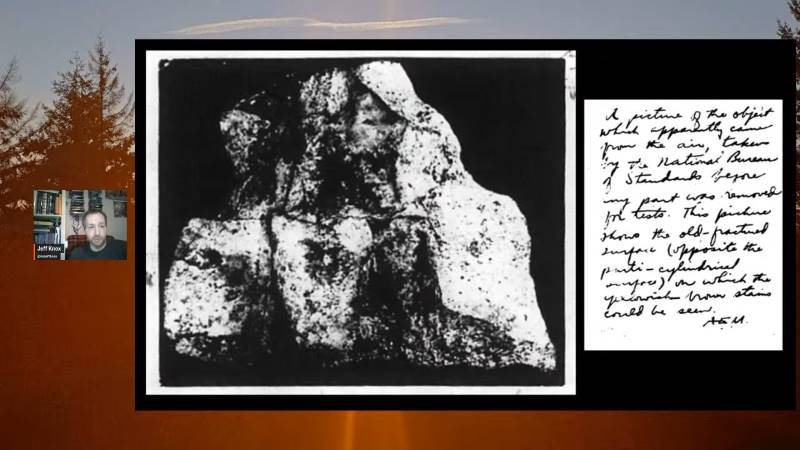 Jeff Knox
A picture of the object
which apparently came
from the air, taken
by the National Bureau
of Standards before
my part was removed
for tests. This picture
shows the old-fractured
surface (opposite the
parti-cylindrical
surface) on which the
yellowish brown stains
could be seen.